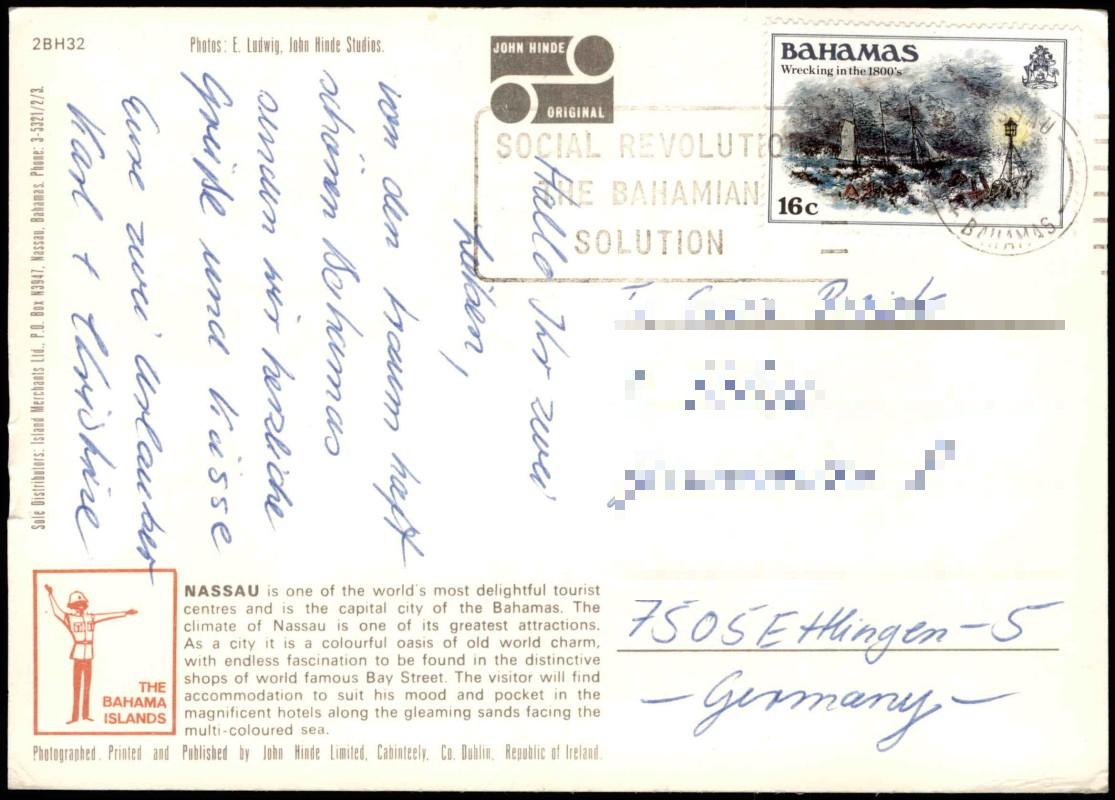 2BH32
Photos: E. Ludwig, John Hinde Studios.
JOHN HINDE
ORIGINAL
BAHAMAS
Wrecking in the 1800's
16c
SOCIAL REVOLUTIO
THE BAHAMIAN
SOLUTION
BAHAMAS
Sole Distributors: Island Merchants Ltd., P.O. Box N3947, Nassau, Bahamas. Phone: 3-5321/2/3.
Hallo Ihr zwei
Lieben,
von den traumhaft
schönen Bahamas
senden wir herzliche
Grüße und Küsse
Eure zwei Urlauber
Karl + Christine
7505 Ettlingen-5
- Germany -
THE
BAHAMA
ISLANDS
NASSAU is one of the world's most delightful tourist
centres and is the capital city of the Bahamas. The
climate of Nassau is one of its greatest attractions.
As a city it is a colourful oasis of old world charm,
with endless fascination to be found in the distinctive
shops of world famous Bay Street. The visitor will find
accommodation to suit his mood and pocket in the
magnificent hotels along the gleaming sands facing the
multi-coloured sea.
Photographed, Printed and Published by John Hinde Limited, Cabinteely, Co. Dublin, Republic of Ireland.